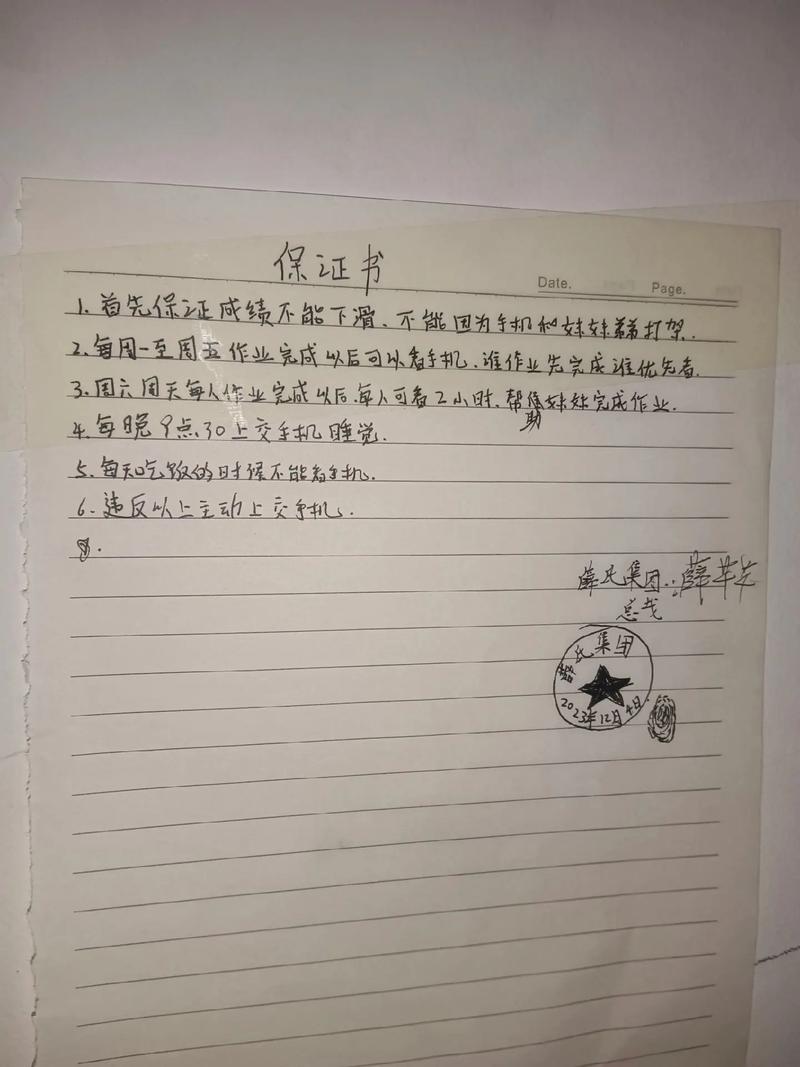 保证书
Date.
Page.
1.首先保证成绩不能下滑、不能因为手机和妹妹弟弟打架.
2.每周一至周五作业完成以后可以看手机、谁作业先完成谁优先看.
3.周六周天每人作业完成以后、每人可看2小时、帮助妹妹完成作业.
4.每晚9点30上交手机睡觉.
5.每天吃饭的时候不能看手机.
6.违反以上主动上交手机.
薛氏集团:薛
总裁
薛氏集团
2023年12月4日